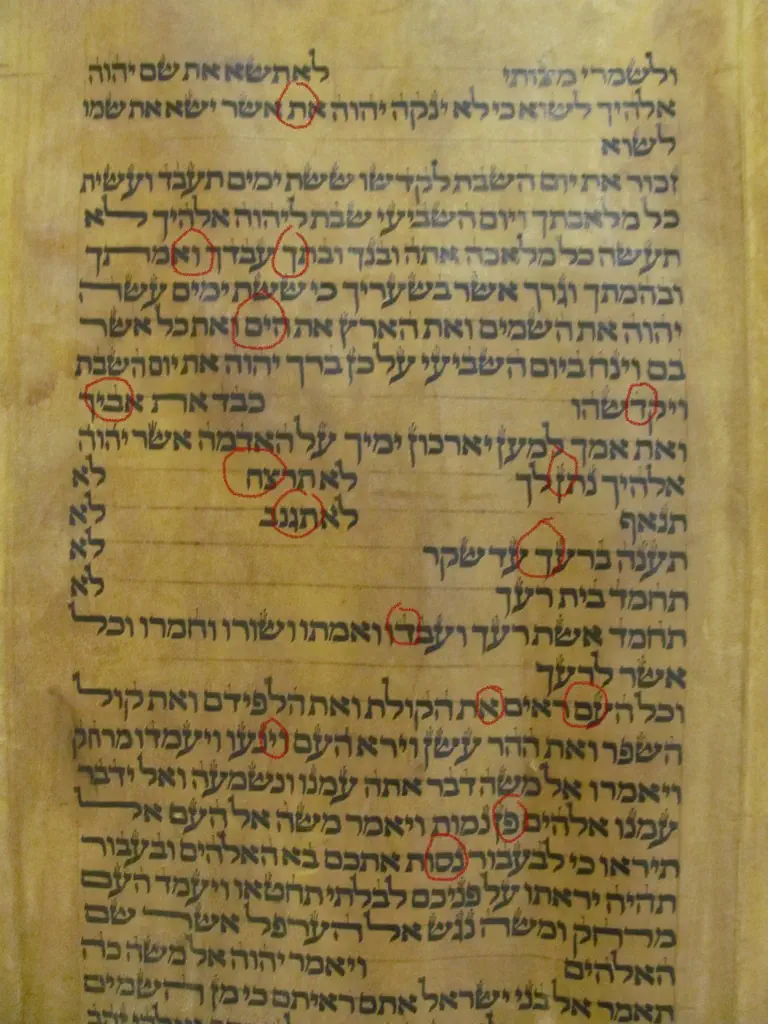 ולשמרי מצותי לא תשא את שם יהוה
אלהיך לשוא כי לא ינקה יהוה את אשר ישא את שמו
לשוא
זכור את יום השבת לקדשו ששת ימים תעבד ועשית
כל מלאכתך ויום השביעי שבת ליהוה אלהיך לא
תעשה כל מלאכה אתה ובנך ובתך עבדך ואמתך
ובהמתך וגרך אשר בשעריך כי ששת ימים עשה
יהוה את השמים ואת הארץ את הים ואת כל אשר
בם וינח ביום השביעי על כן ברך יהוה את יום השבת
ויקדשהו כבד את אביך
ואת אמך למען יארכון ימיך על האדמה אשר יהוה
אלהיך נתן לך לא תרצח לא
תנאף לא תגנב לא
תענה ברעך עד שקר לא
תחמד בית רעך לא
תחמד אשת רעך ועבדו ואמתו ושורו וחמרו וכל
אשר לרעך
וכל העם ראים את הקולת ואת הלפידם ואת קול
השפר ואת ההר עשן וירא העם וינעו ויעמדו מרחק
ויאמרו אל משה דבר אתה עמנו ונשמעה ואל ידבר
עמנו אלהים פן נמות ויאמר משה אל העם אל
תיראו כי לבעבור נסות אתכם בא האלהים ובעבור
תהיה יראתו על פניכם לבלתי תחטאו ויעמד העם
מרחק ומשה נגש אל הערפל אשר שם
האלהים ויאמר יהוה אל משה כה
תאמר אל בני ישראל אתם ראיתם כי מן השמים